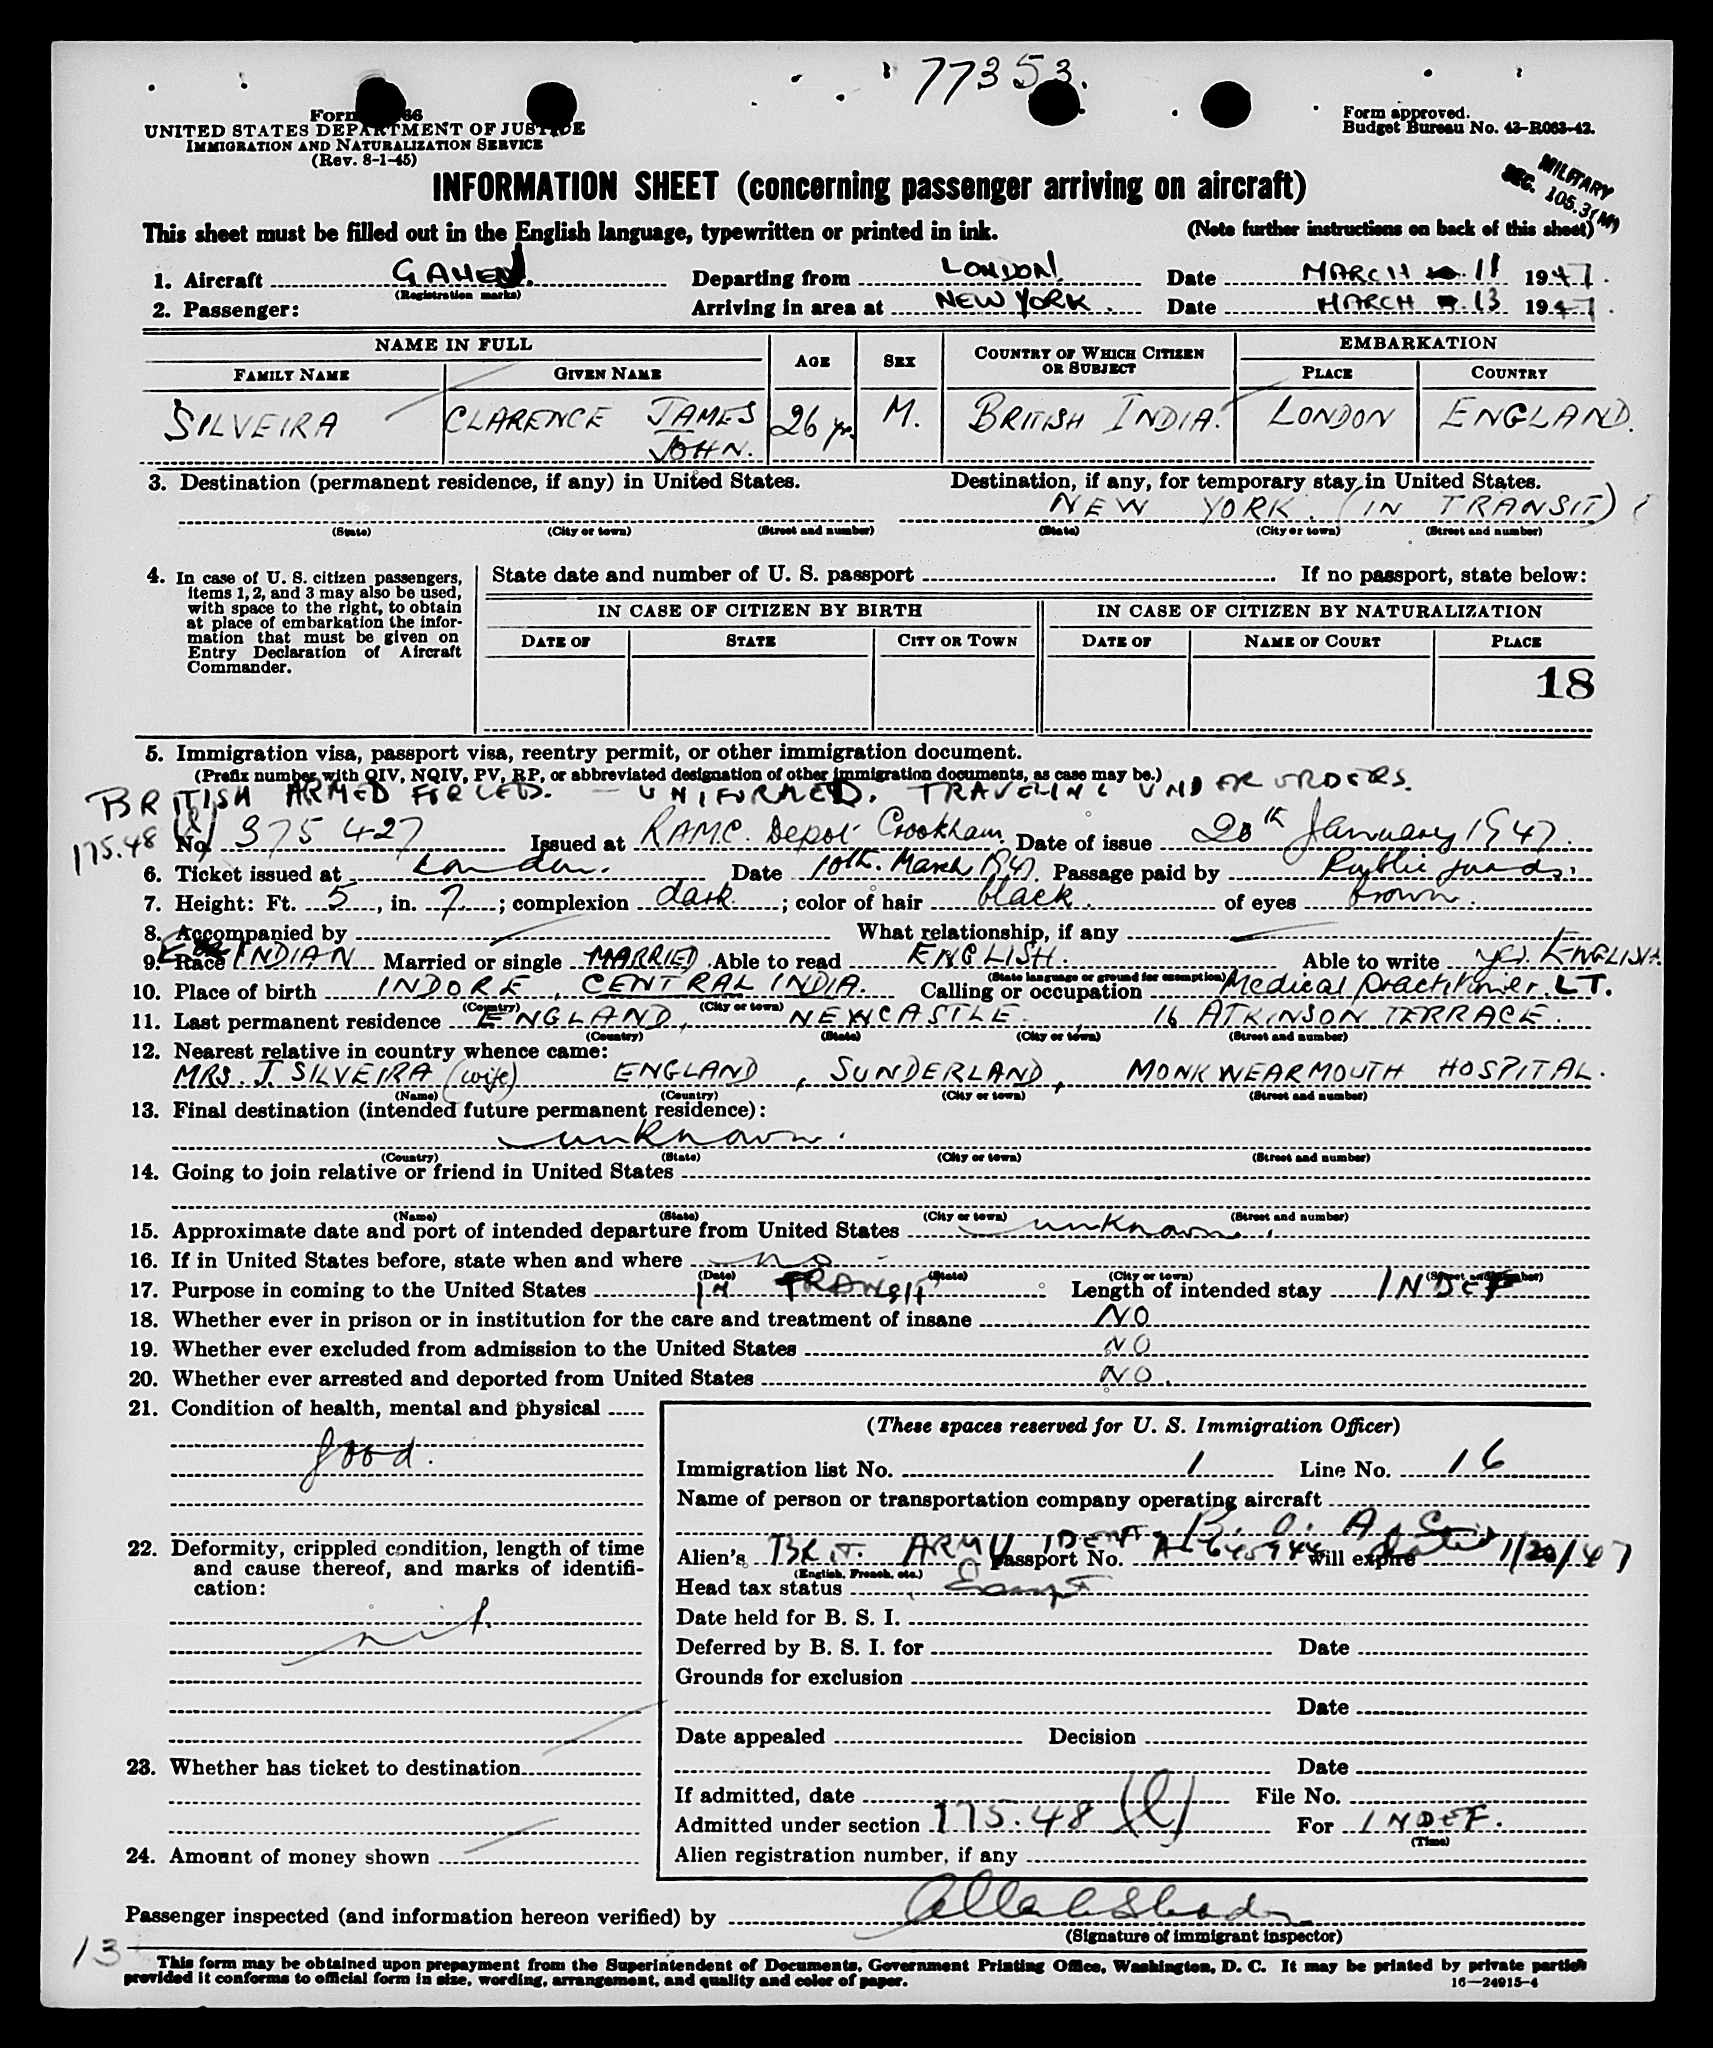 77353.
Form 66
UNITED STATES DEPARTMENT OF JUSTICE
IMMIGRATION AND NATURALIZATION SERVICE
(Rev. 8-1-45)
Form approved.
Budget Bureau No. 43-R063-42.
INFORMATION SHEET (concerning passenger arriving on aircraft)
MILITARY
SEC. 105.3(M)
This sheet must be filled out in the English language, typewritten or printed in ink. (Note further instructions on back of this sheet)
1. Aircraft GAHEN. Departing from LONDON. Date MARCH 11 1947.
(Registration marks)
2. Passenger: Arriving in area at NEW YORK. Date MARCH 13 1947.
NAME IN FULL AGE SEX COUNTRY OF WHICH CITIZEN OR SUBJECT EMBARKATION
FAMILY NAME GIVEN NAME PLACE COUNTRY
SILVEIRA CLARENCE JAMES 26 yrs. M. BRITISH INDIA. LONDON ENGLAND.
JOHN.
3. Destination (permanent residence, if any) in United States. Destination, if any, for temporary stay in United States.
NEW YORK. (IN TRANSIT)
(State) (City or town) (Street and number) (State) (City or town) (Street and number)
4. In case of U. S. citizen passengers, items 1, 2, and 3 may also be used, with space to the right, to obtain at place of embarkation the information that must be given on Entry Declaration of Aircraft Commander.
State date and number of U. S. passport If no passport, state below:
IN CASE OF CITIZEN BY BIRTH IN CASE OF CITIZEN BY NATURALIZATION
DATE OF STATE CITY OR TOWN DATE OF NAME OF COURT PLACE
18
5. Immigration visa, passport visa, reentry permit, or other immigration document.
(Prefix number with QIV, NQIV, PV, RP, or abbreviated designation of other immigration documents, as case may be.)
BRITISH ARMED FORCES. - UNIFORMED. TRAVELING UNDER ORDERS.
175.48 (l)
No. 375427 Issued at RAMC. Depot Crookham. Date of issue 20th January 1947.
6. Ticket issued at London. Date 10th. March 1947. Passage paid by Public funds.
7. Height: Ft. 5, in. 7; complexion dark; color of hair black. of eyes brown.
8. Accompanied by What relationship, if any
9. Race INDIAN Married or single MARRIED. Able to read ENGLISH. Able to write yes. ENGLISH.
(State language or ground for exemption)
10. Place of birth INDORE, CENTRAL INDIA. Calling or occupation Medical Practitioner. LT.
(Country) (City or town)
11. Last permanent residence ENGLAND, NEWCASTLE. 16 ATKINSON TERRACE.
(Country) (State) (City or town) (Street and number)
12. Nearest relative in country whence came:
MRS. J. SILVEIRA (wife) ENGLAND, SUNDERLAND, MONKWEARMOUTH HOSPITAL.
(Name) (Country) (City or town) (Street and number)
13. Final destination (intended future permanent residence):
unknown.
(Country) (State) (City or town) (Street and number)
14. Going to join relative or friend in United States
(Name) (State) (City or town) (Street and number)
15. Approximate date and port of intended departure from United States unknown.
16. If in United States before, state when and where no -
(Date) (State) (City or town) (Street and number)
17. Purpose in coming to the United States IN TRANSIT Length of intended stay INDEF
18. Whether ever in prison or in institution for the care and treatment of insane NO
19. Whether ever excluded from admission to the United States NO
20. Whether ever arrested and deported from United States NO.
21. Condition of health, mental and physical
good.
22. Deformity, crippled condition, length of time and cause thereof, and marks of identification:
nil.
23. Whether has ticket to destination
24. Amount of money shown
(These spaces reserved for U. S. Immigration Officer)
Immigration list No. 1 Line No. 16
Name of person or transportation company operating aircraft
B. O. A. C.
Alien's BRIT. ARMY IDENT passport No. will expire dated 1/20/47
(English, French, etc.)
Head tax status Exempt
Date held for B. S. I.
Deferred by B. S. I. for Date
Grounds for exclusion
Date
Date appealed Decision
Date
If admitted, date File No.
Admitted under section 175.48 (l) For INDEF.
(Time)
Alien registration number, if any
Passenger inspected (and information hereon verified) by
(Signature of immigrant inspector)
13
This form may be obtained upon prepayment from the Superintendent of Documents, Government Printing Office, Washington, D. C. It may be printed by private parties
provided it conforms to official form in size, wording, arrangement, and quality and color of paper. 16—24915-4